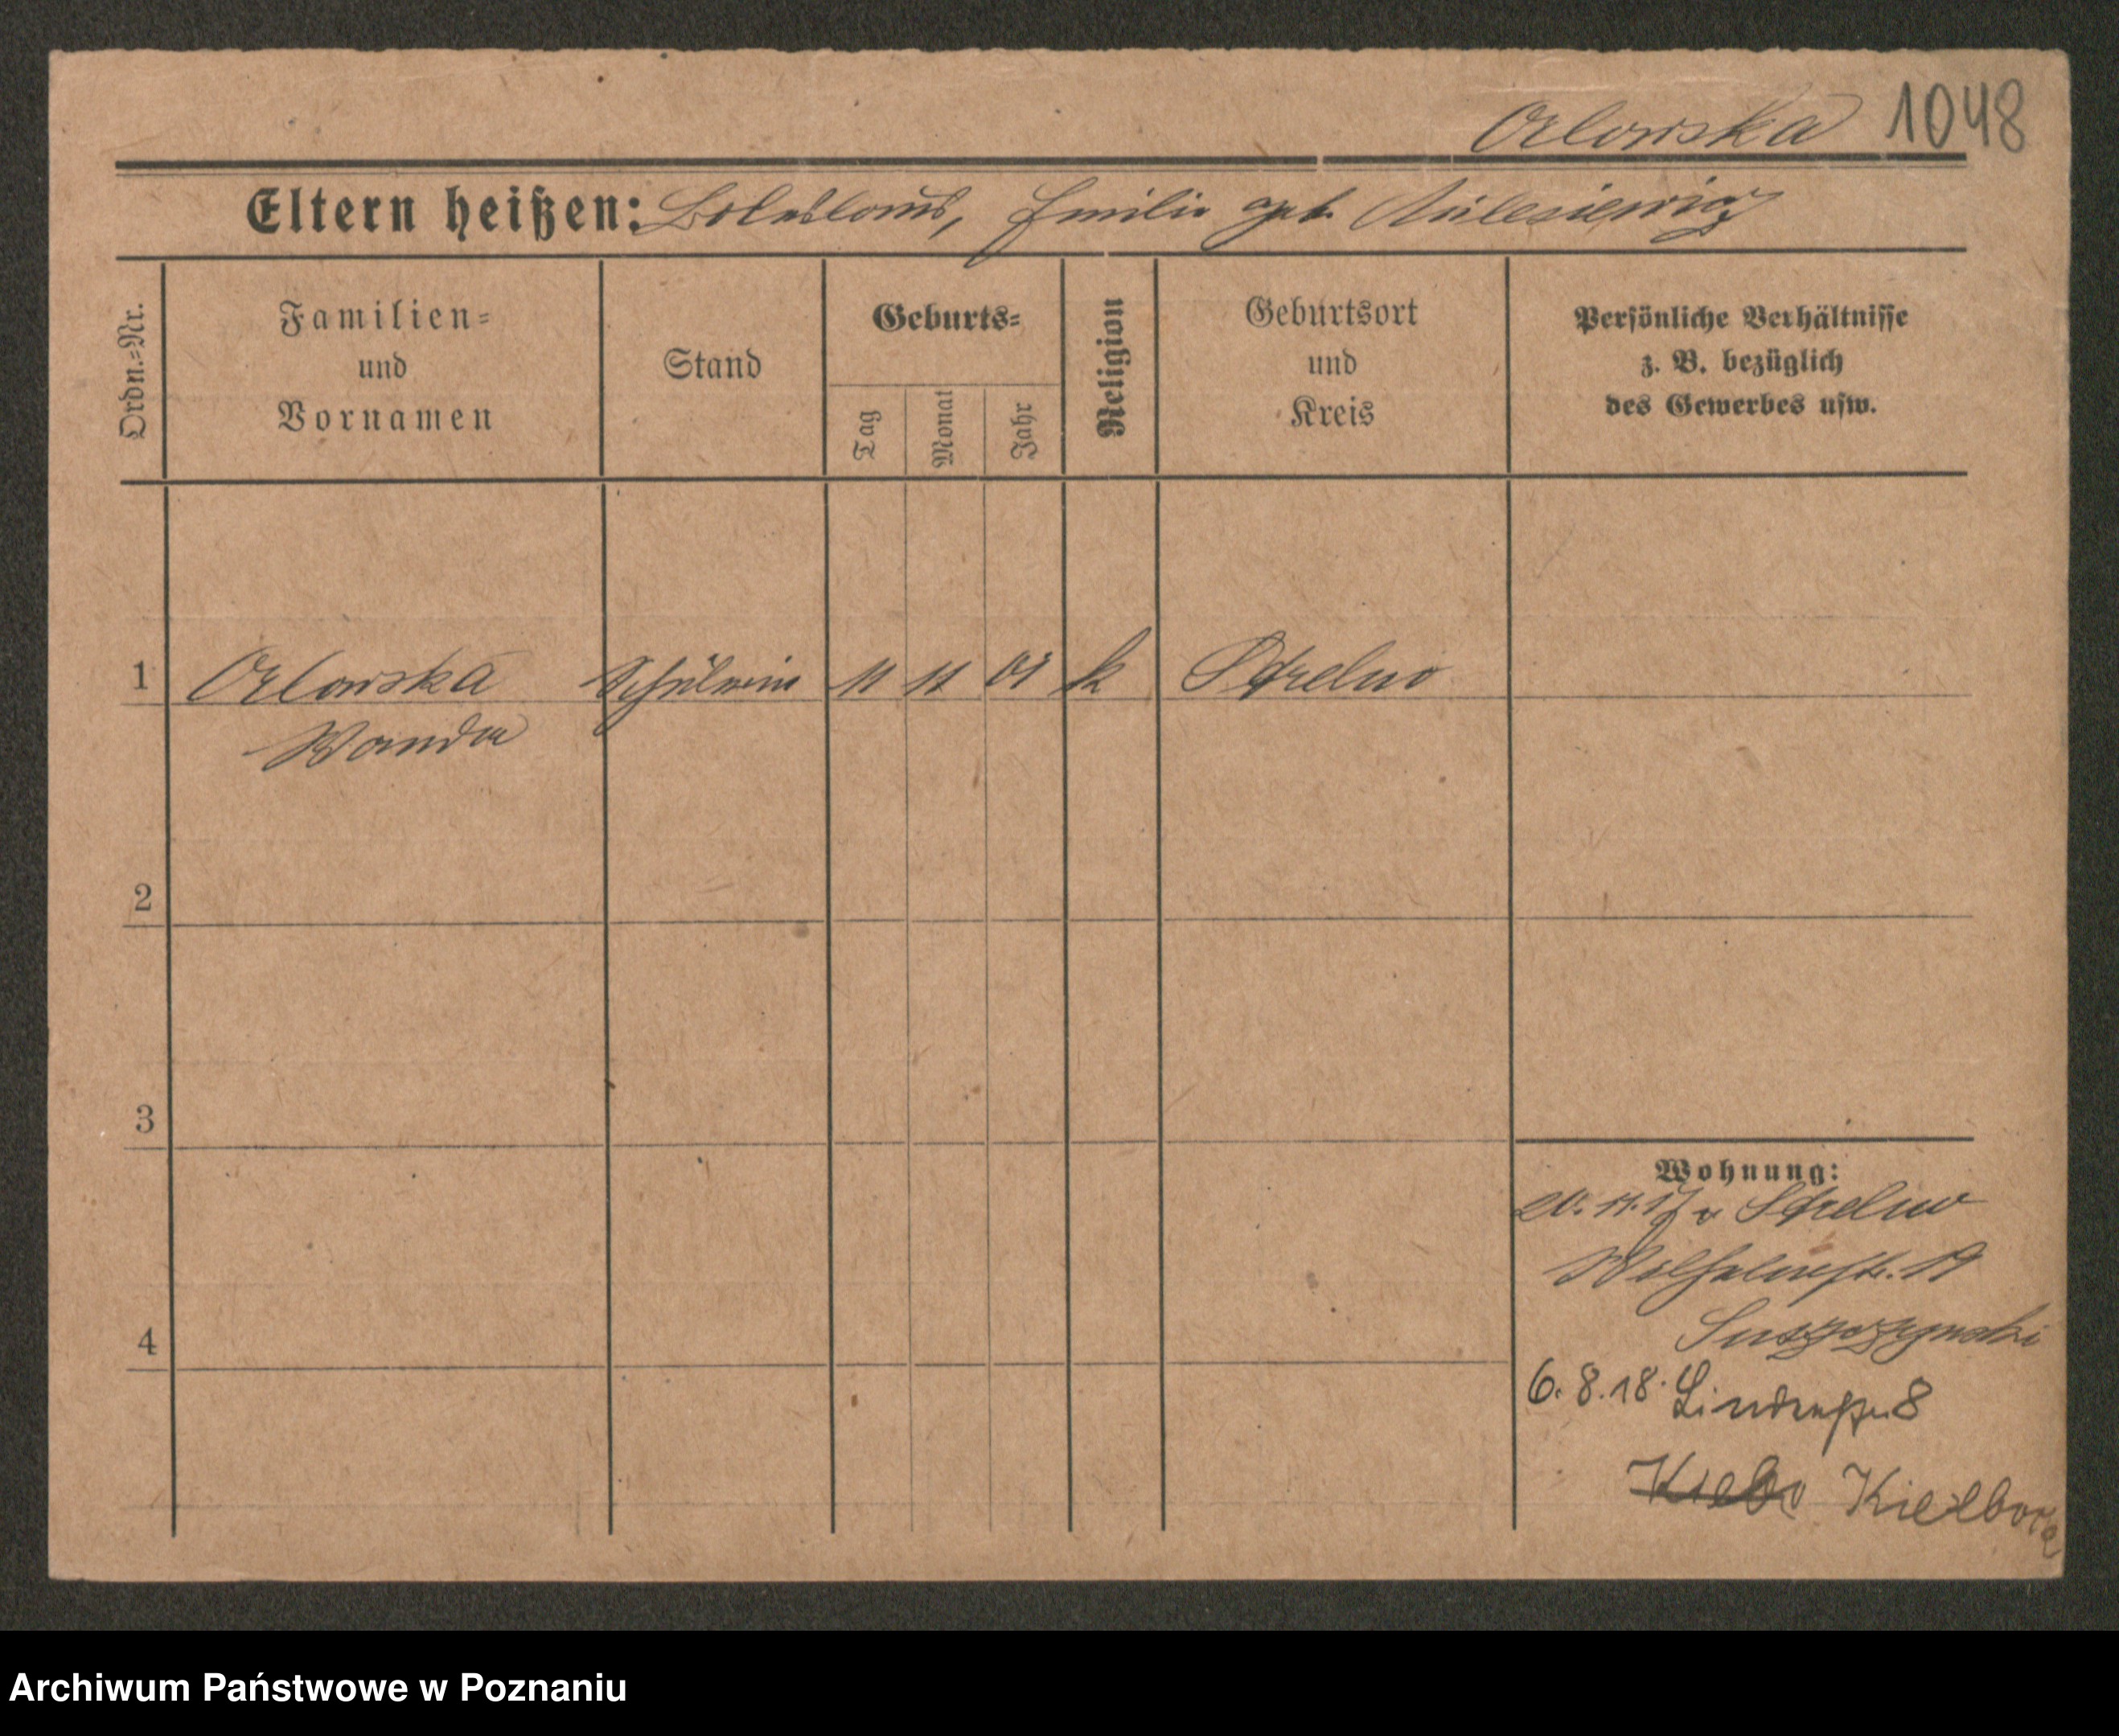 Orlowska 1048
Eltern heißen: Boleslaus, Emilie geb.
Ordn.-Nr.
Familien-
und
Vornamen
Stand
Geburts-
Tag
Monat
Jahr
Religion
Geburtsort
und
Kreis
Persönliche Verhältnisse
z. B. bezüglich
des Gewerbes usw.
1 Orlowska Schülerin 11 11 01 k Strelno
Wanda
2
3
Wohnung:
20. 11. 17 v Strelno
Wilhelmstr. 19
4
6. 8. 18. Lindenstr. 8
Archiwum Państwowe w Poznaniu